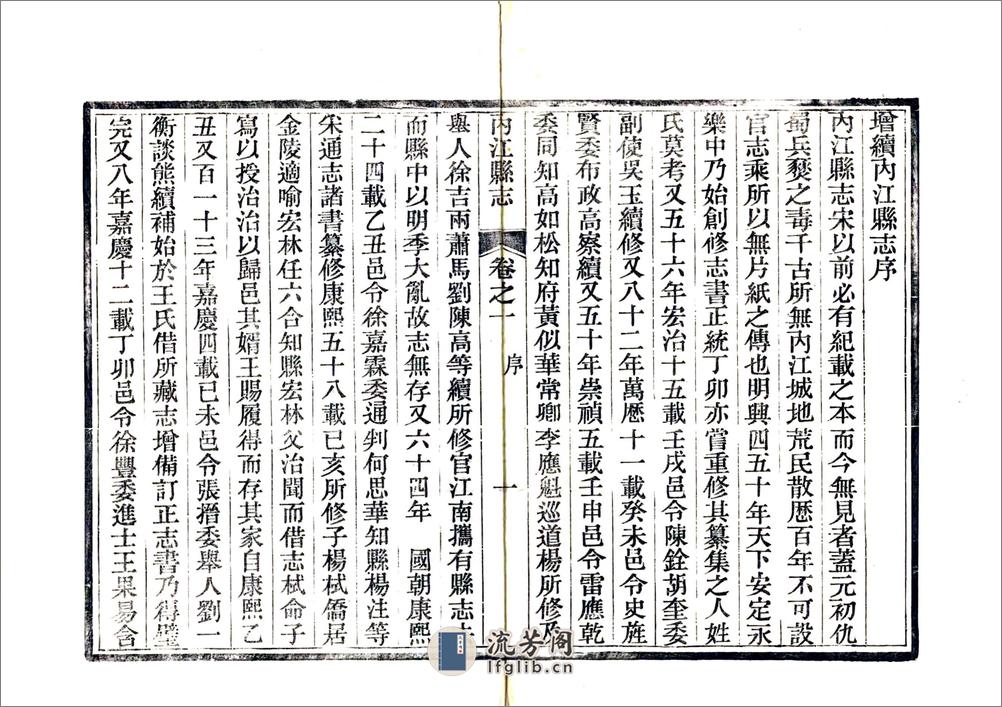 增續內江縣志序
內江縣志宋以前必有紀載之本而今無見者蓋元初仇
蜀兵燹之毒千古所無內江城地荒民散歷百年不可設
官志乘所以無片紙之傳也明興四五十年天下安定永
樂中乃始創修志書正統丁卯亦嘗重修其纂集之人姓
氏莫考又五十六年宏治十五載壬戌邑令陳銓胡奎委
副使吳玉續修又八十二年萬歷十一載癸未邑令史旌
賢委布政高察續又五十年崇禎五載壬申邑令雷應乾
委同知高如松知府黃似華常卿李應魁巡道楊所修及
內江縣志 卷之一 序 一
舉人徐吉兩蕭馬劉陳高等續所修官江南攜有縣志去
而縣中以明季大亂故志無存又六十四年 國朝康熙
二十四載乙丑邑令徐嘉霖委通判何思華知縣楊注等
宋通志諸書纂修康熙五十八載已亥所修子楊栻僑居
金陵適喻宏林任六合知縣宏林父治聞而借志栻命子
寫以授治治以歸邑其婿王賜履得而存其家自康熙乙
丑又百一十三年嘉慶四載已未邑令張搢委舉人劉一
衡談熊續補始於王氏借所藏志增備訂正志書乃得璧
完又八年嘉慶十二載丁卯邑令徐豐委進士王果易含
流芳阁
lfglib.cn